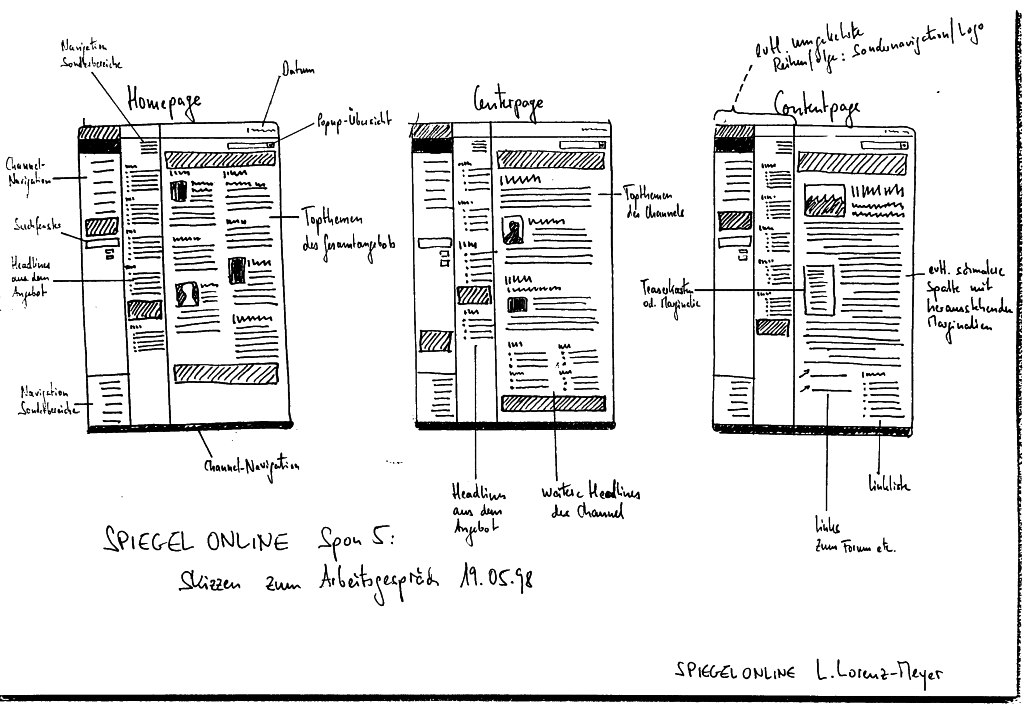 Navigation
Sonderbereiche
Datum
Homepage
Popup-Übersicht
Channel-
Navigation
Suchfenster
Headlines
aus dem
Angebot
Navigation
Sonderbereiche
Topthemen
des Gesamtangebots
Channel-Navigation
Centerpage
Topthemen
des Channels
Headlines
aus dem
Angebot
weitere Headlines
des Channel
evtl. umgekehrte
Reihenfolge: Sondernavigation/Logo
Contentpage
Teaserkasten
od. Marginalie
evtl. schmalere
Spalte mit
herausstehenden
Marginalien
Linkliste
Links
zum Forum etc.
SPIEGEL ONLINE Spon 5:
Skizzen zum Arbeitsgespräch 19.05.98
SPIEGEL ONLINE L. Lorenz-Meyer